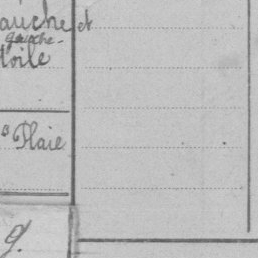 auche et
gauche-
toile
° Plaie
9.